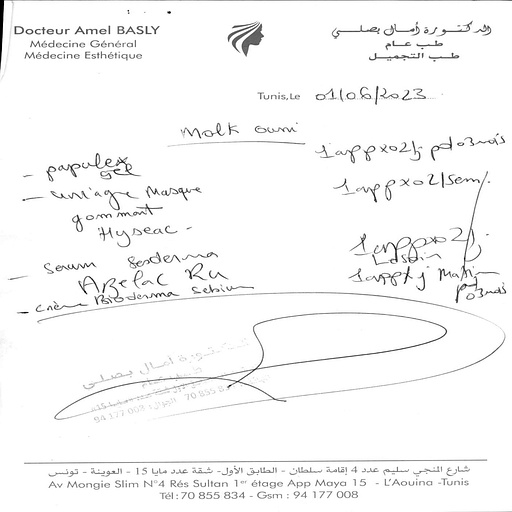 Docteur Amel BASLY
Médecine Général
Médecine Esthétique
الدكتورة أمال بصلي
طب عام
طب التجميل
Tunis,Le 01/06/2023
Molk
- papulex gel 1 app x 02/j pd 03 mois
- Masque gommant Hyseac - 1 app x 02/sem
- Serum Sesderma Azelac Ru 1 app x 02/j
- crème Bioderma Sebium 1 app x j Matin pd 03 mois
شارع المنجي سليم عدد 4 إقامة سلطان - الطابق الأول- شقة عدد مايا 15 - العوينة - تونس
Av Mongie Slim N°4 Rés Sultan 1er étage App Maya 15 - L'Aouina -Tunis
Tél : 70 855 834 - Gsm : 94 177 008